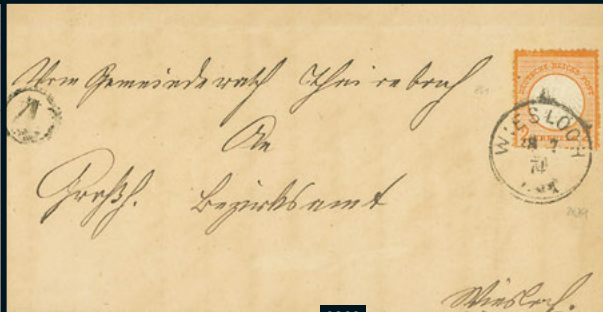 Vom Gemeinderath Thairnbach
An
Großh. Bezirksamt
Wiesloch.
DEUTSCHE REICHS-POST
WIESLOCH
74